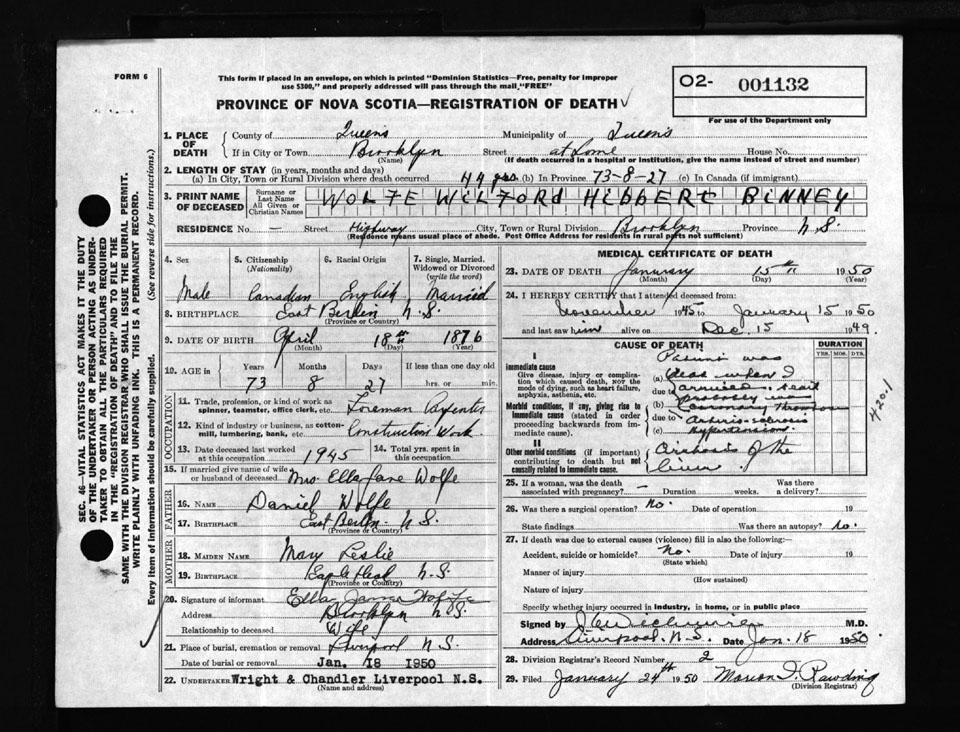 FORM 6
This form if placed in an envelope, on which is printed "Dominion Statistics—Free, penalty for improper
use $300," and properly addressed will pass through the mail "FREE"
PROVINCE OF NOVA SCOTIA—REGISTRATION OF DEATH
O2- 001132
For use of the Department only
SEC. 46—VITAL STATISTICS ACT MAKES IT THE DUTY
OF THE UNDERTAKER OR PERSON ACTING AS UNDER-
TAKER TO OBTAIN ALL THE PARTICULARS REQUIRED
IN THE "REGISTRATION OF DEATH" AND TO FILE THE
SAME WITH THE DIVISION REGISTRAR WHO SHALL ISSUE THE BURIAL PERMIT.
WRITE PLAINLY WITH UNFADING INK. THIS IS A PERMANENT RECORD.
Every item of information should be carefully supplied. (See reverse side for instructions.)
1. PLACE OF DEATH
County of Queens Municipality of Queens
If in City or Town Brooklyn Street at home House No.
(Name) (If death occurred in a hospital or institution, give the name instead of street and number)
2. LENGTH OF STAY (in years, months and days)
(a) In City, Town or Rural Division where death occurred 44 yrs. (b) In Province 73-8-27 (c) In Canada (if immigrant)
3. PRINT NAME OF DECEASED
Surname or Last Name
All Given or Christian Names
WOLFE WILFORD HIBBERT BINNEY
RESIDENCE No. — Street Highway City, Town or Rural Division Brooklyn Province N.S.
(Residence means usual place of abode. Post Office Address for residents in rural parts not sufficient)
4. Sex Male
5. Citizenship (Nationality) Canadian
6. Racial Origin English
7. Single, Married, Widowed or Divorced (write the word) Married
8. BIRTHPLACE East Berlin N.S.
(Province or Country)
9. DATE OF BIRTH April 18th 1876
(Month) (Day) (Year)
10. AGE in Years Months Days If less than one day old
73 8 27 hrs. or min.
OCCUPATION
11. Trade, profession or kind of work as
spinner, teamster, office clerk, etc. Foreman Carpenter
12. Kind of industry or business, as cotton-
mill, lumbering, bank, etc. Construction Work
13. Date deceased last worked
at this occupation 1945
14. Total yrs. spent in
this occupation
15. If married give name of wife
or husband of deceased Mrs Ella Jane Wolfe
FATHER
16. Name Daniel Wolfe
17. Birthplace East Berlin N.S.
(Province or Country)
MOTHER
18. Maiden Name Mary Leslie
19. Birthplace Eagle Head N.S.
(Province or Country)
20. Signature of informant Ella Wolfe
Address Brooklyn N.S.
Relationship to deceased Wife
21. Place of burial, cremation or removal Liverpool N.S.
Date of burial or removal Jan. 18 1950
22. Undertaker Wright & Chandler Liverpool N.S.
(Name and address)
MEDICAL CERTIFICATE OF DEATH
23. DATE OF DEATH January 15th 1950
(Month) (Day) (Year)
24. I HEREBY CERTIFY that I attended deceased from:
November 1945 to January 15 1950
and last saw him alive on Dec. 15 1949.
CAUSE OF DEATH DURATION
YRS. MOS. DYS.
I
Immediate cause
Give disease, injury or complica-
tion which caused death, NOT the
mode of dying, such as heart failure,
asphyxia, asthenia, etc.
Patient was
(a) dead when I
due to arrived. Death
Morbid conditions, if any, giving rise to
immediate cause (stated in order
proceeding backwards from im-
mediate cause).
probably was
(b) Coronary Thrombosis
due to Arterio-sclerosis
(c) Hypertension
II
Other morbid conditions (if important)
contributing to death but not
causally related to immediate cause.
Cirrhosis of the
liver.
420.1
25. If a woman, was the death Was there
associated with pregnancy? — Duration weeks. a delivery?
26. Was there a surgical operation? No. Date of operation 19
State findings Was there an autopsy? No.
27. If death was due to external causes (violence) fill in also the following:
Accident, suicide or homicide? No. Date of injury 19
(State which)
Manner of injury
(How sustained)
Nature of injury
Specify whether injury occurred in industry, in home, or in public place
Signed by M.D.
Address Liverpool. N.S. Date Jan. 18 1950.
28. Division Registrar's Record Number 2
29. Filed January 24th 1950 Marion I. Rawding
(Division Registrar)